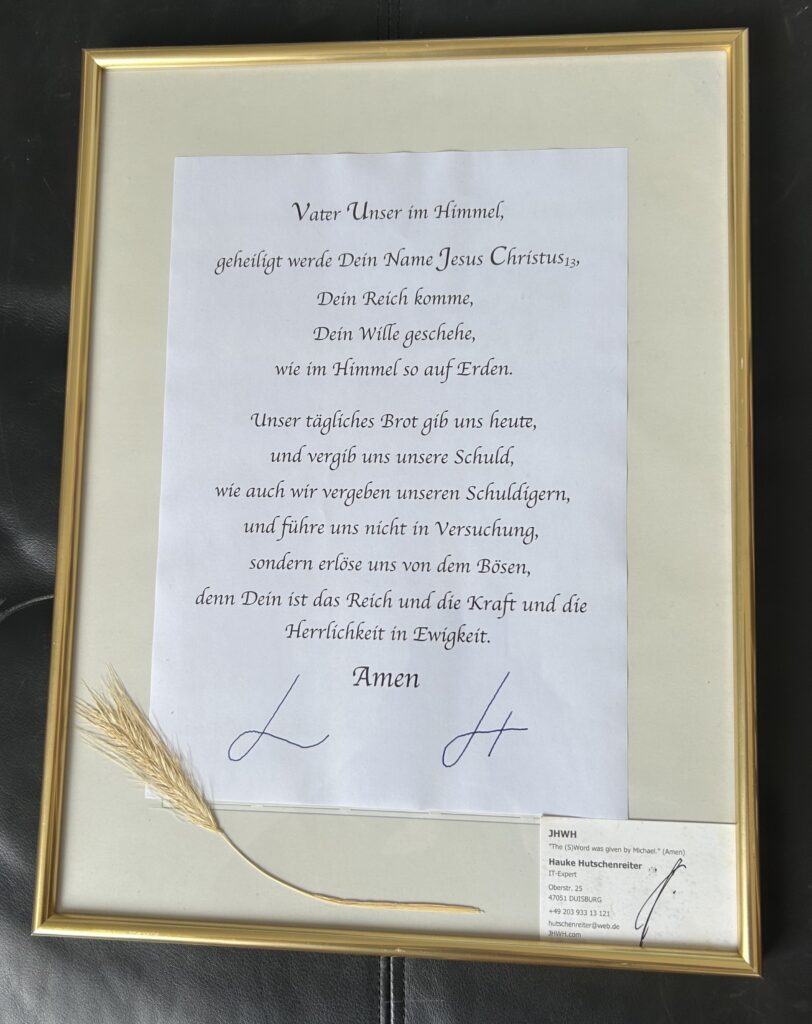 Vater Unser im Himmel,
geheiligt werde Dein Name Jesus Christus₁₃,
Dein Reich komme,
Dein Wille geschehe,
wie im Himmel so auf Erden.
Unser tägliches Brot gib uns heute,
und vergib uns unsere Schuld,
wie auch wir vergeben unseren Schuldigern,
und führe uns nicht in Versuchung,
sondern erlöse uns von dem Bösen,
denn Dein ist das Reich und die Kraft und die
Herrlichkeit in Ewigkeit.
Amen
JHWH
"The (S)Word was given by Michael." (Amen)
Hauke Hutschenreiter
IT-Expert
Oberstr. 25
47051 DUISBURG
+49 203 933 13 121
hutschenreiter@web.de
JHWH.com